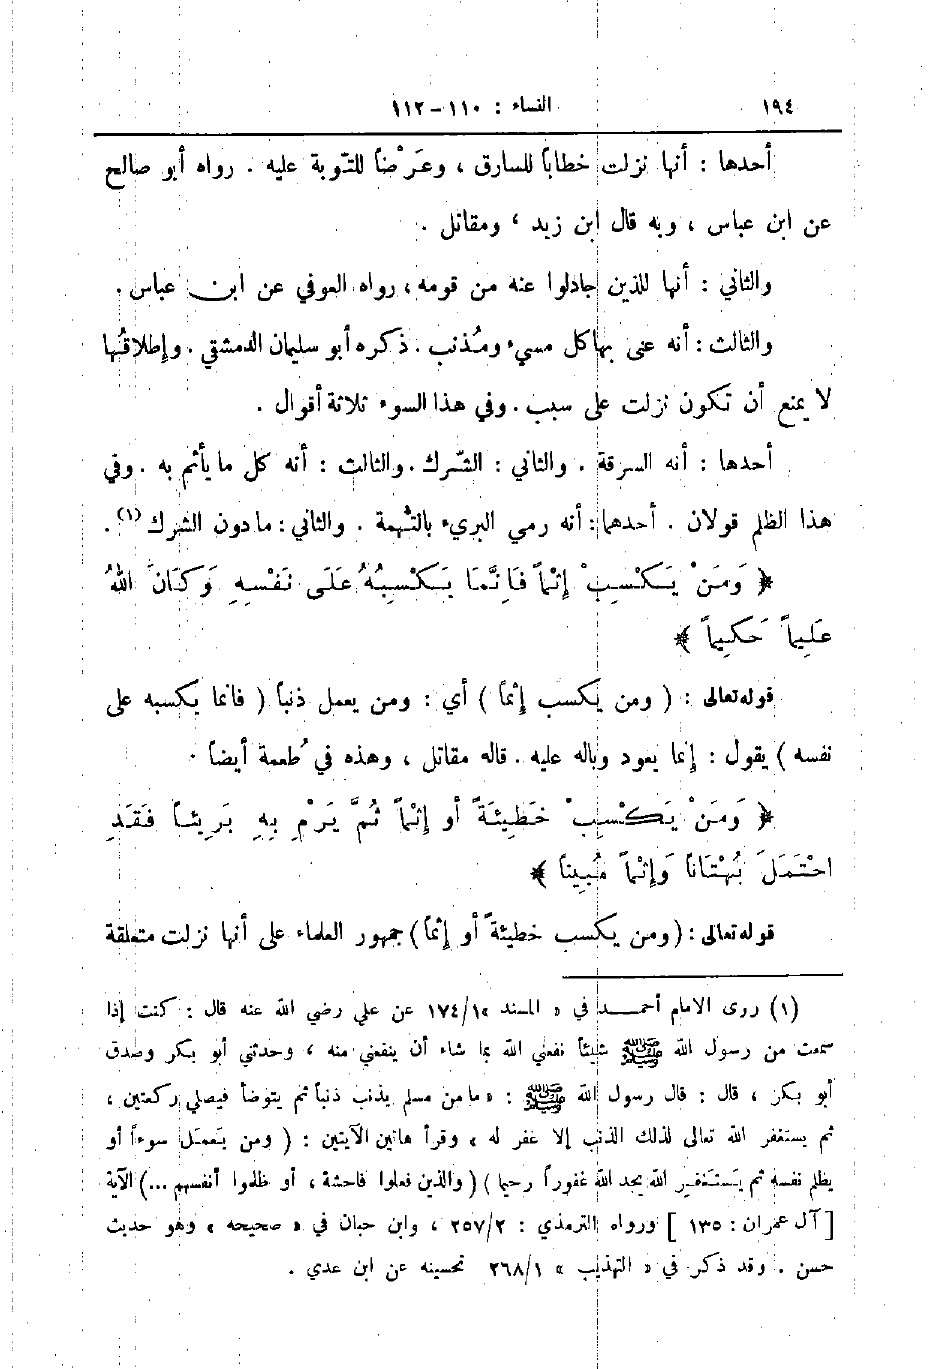 ١٩٤ النساء : ١١٠ – ١١٢
أحدها : أنها نزلت خطاباً للسارق ، وعَرْضاً للتّوبة عليه . رواه أبو صالح
عن ابن عباس ، وبه قال ابن زيد ، ومقاتل .
والثاني : أنها للذين جادلوا عنه من قومه ، رواه العوفي عن ابن عباس .
والثالث : أنه عنى بها كل مسيء ومُذنب . ذكره أبو سليمان الدمشقي . وإطلاقُها
لا يمنع أن تكون نزلت على سبب . وفي هذا السوء ثلاثة أقوال .
أحدها : أنه السرقة . والثاني : الشّرك . والثالث : أنه كل ما يأثم به . وفي
هذا الظلم قولان . أحدهما : أنه رمي البريء بالتُّهمة . والثاني : ما دون الشرك (١) .
﴿ وَمَنْ يَكْسِبْ إِثْماً فَإِنَّمَا يَكْسِبُهُ عَلَى نَفْسِهِ وَكَانَ اللهُ
عَلِيماً حَكِيماً ﴾
قوله تعالى : ( ومن يكسب إِثماً ) أي : ومن يعمل ذنباً ( فانما يكسبه على
نفسه ) يقول : إِنما يعود وباله عليه . قاله مقاتل ، وهذه في طُعمة أيضاً .
﴿ وَمَنْ يَكْسِبْ خَطِيئَةً أو إِثْماً ثُمَّ يَرْمِ بِهِ بَرِيئاً فَقَدِ
احْتَمَلَ بُهْتَاناً وَإِثْماً مُبِيناً ﴾
قوله تعالى : ( ومن يكسب خطيئةً أو إِثماً ) جمهور العلماء على أنها نزلت متعلقة
(١) روى الامام أحمد في « المسند » ١٧٤/١ عن علي رضي الله عنه قال : كنت إذا
سمعت من رسول الله ﷺ شيئاً نفعني الله بما شاء أن ينفعني منه ، وحدثني أبو بكر وصدق
أبو بكر ، قال : قال رسول الله ﷺ : « ما من مسلم يذنب ذنباً ثم يتوضأ فيصلي ركعتين ،
ثم يستغفر الله تعالى لذلك الذنب إلا غفر له » وقرأ هاتين الآيتين : ( ومن يعمل سوءاً أو
يظلم نفسه ثم يستغفر الله يجد الله غفوراً رحيما ) ( والذين فعلوا فاحشة ، أو ظلموا أنفسهم ... ) الآية
[ آل عمران : ١٣٥ ] ورواه الترمذي : ٢٥٧/٢ ، وابن حبان في « صحيحه » وهو حديث
حسن . وقد ذكر في « التهذيب » ٢٦٨/١ تحسينه عن ابن عدي .